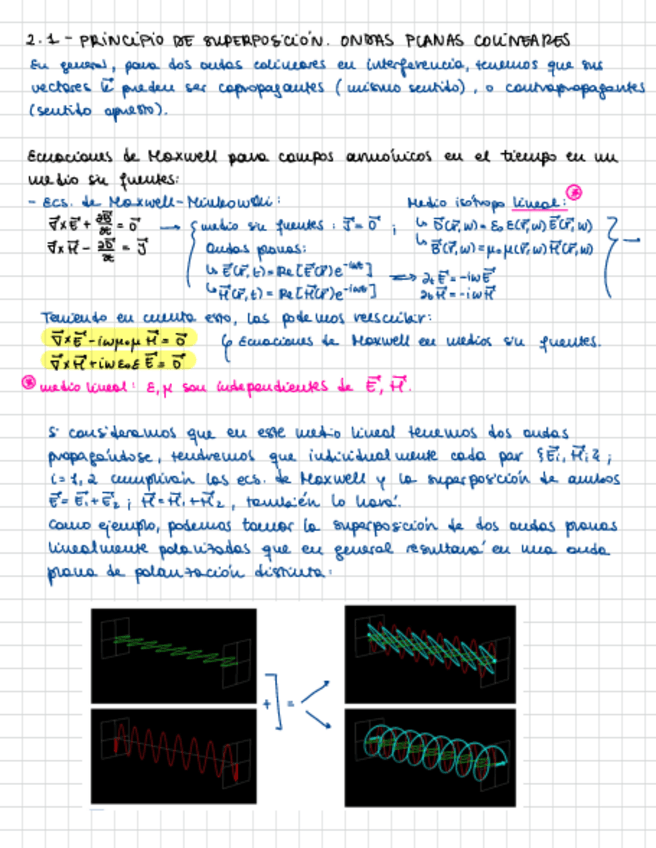 2.1 - PRINCIPIO DE SUPERPOSICIÓN. ONDAS PLANAS COLINEARES
En general, para dos ondas colineares en interferencia, tenemos que sus
vectores k⃗ pueden ser copropagantes (mismo sentido), o contrapropagantes
(sentido opuesto).
Ecuaciones de Maxwell para campos armónicos en el tiempo en un
medio sin fuentes:
- Ecs. de Maxwell-Minkowski:
∇⃗×E⃗ + ∂B⃗/∂t = 0⃗
∇⃗×H⃗ - ∂D⃗/∂t = J⃗
→ { medio sin fuentes: J⃗=0⃗ ;
Ondas planas:
↳ E⃗(r⃗,t) = Re[E⃗(r⃗)e^-iωt]
↳ H⃗(r⃗,t) = Re[H⃗(r⃗)e^-iωt]
⟹ ∂tE⃗ = -iωE⃗
∂tH⃗ = -iωH⃗
Medio isótropo lineal: ⊛
↳ D⃗(r⃗,ω) = ε₀ε(r⃗,ω)E⃗(r⃗,ω)
↳ B⃗(r⃗,ω) = μ₀μ(r⃗,ω)H⃗(r⃗,ω) } →
Teniendo en cuenta esto, las podemos reescribir:
∇⃗×E⃗ - iωμ₀μ H⃗ = 0⃗
∇⃗×H⃗ + iωε₀ε E⃗ = 0⃗
Ecuaciones de Maxwell en medios sin fuentes.
⊛ medio lineal: ε, μ son independientes de E⃗, H⃗.
Si consideramos que en este medio lineal tenemos dos ondas
propagándose, tendremos que individualmente cada par {E⃗i, H⃗i} ;
i=1,2 cumplirán las ecs. de Maxwell y la superposición de ambos
E⃗ = E⃗₁+E⃗₂ ; H⃗ = H⃗₁+H⃗₂, también lo hará.
Como ejemplo, podemos tomar la superposición de dos ondas planas
linealmente polarizadas que en general resultará en una onda
plana de polarización distinta:
+ ] =